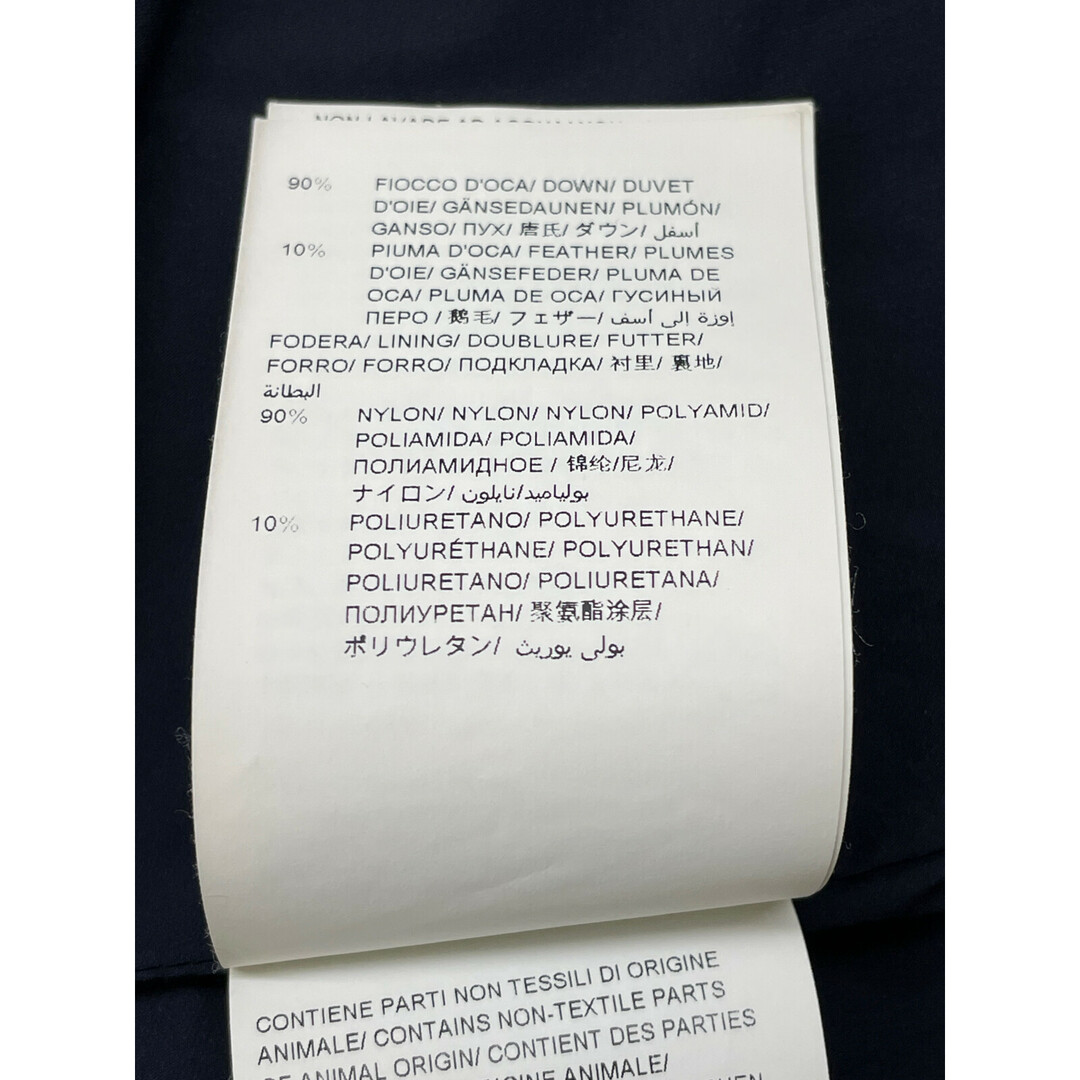 90% FIOCCO D'OCA/ DOWN/ DUVET
D'OIE/ GÄNSEDAUNEN/ PLUMÓN/
GANSO/ ПУХ/ 唐氏/ ダウン/ أسفل
10% PIUMA D'OCA/ FEATHER/ PLUMES
D'OIE/ GÄNSEFEDER/ PLUMA DE
OCA/ PLUMA DE OCA/ ГУСИНЫЙ
ПЕРО / 鹅毛/ フェザー/ إوزة إلى أسف
FODERA/ LINING/ DOUBLURE/ FUTTER/
FORRO/ FORRO/ ПОДКЛАДКА/ 衬里/ 裏地/
البطانة
90% NYLON/ NYLON/ NYLON/ POLYAMID/
POLIAMIDA/ POLIAMIDA/
ПОЛИАМИДНОЕ / 锦纶/尼龙/
ナイロン/ بولياميد/نايلون
10% POLIURETANO/ POLYURETHANE/
POLYURÉTHANE/ POLYURETHAN/
POLIURETANO/ POLIURETANA/
ПОЛИУРЕТАН/ 聚氨酯涂层/
ポリウレタン/ بولي يوريث
CONTIENE PARTI NON TESSILI DI ORIGINE
ANIMALE/ CONTAINS NON-TEXTILE PARTS
ANIMAL ORIGIN/ CONTIENT DES PARTIES
ANIMALE/